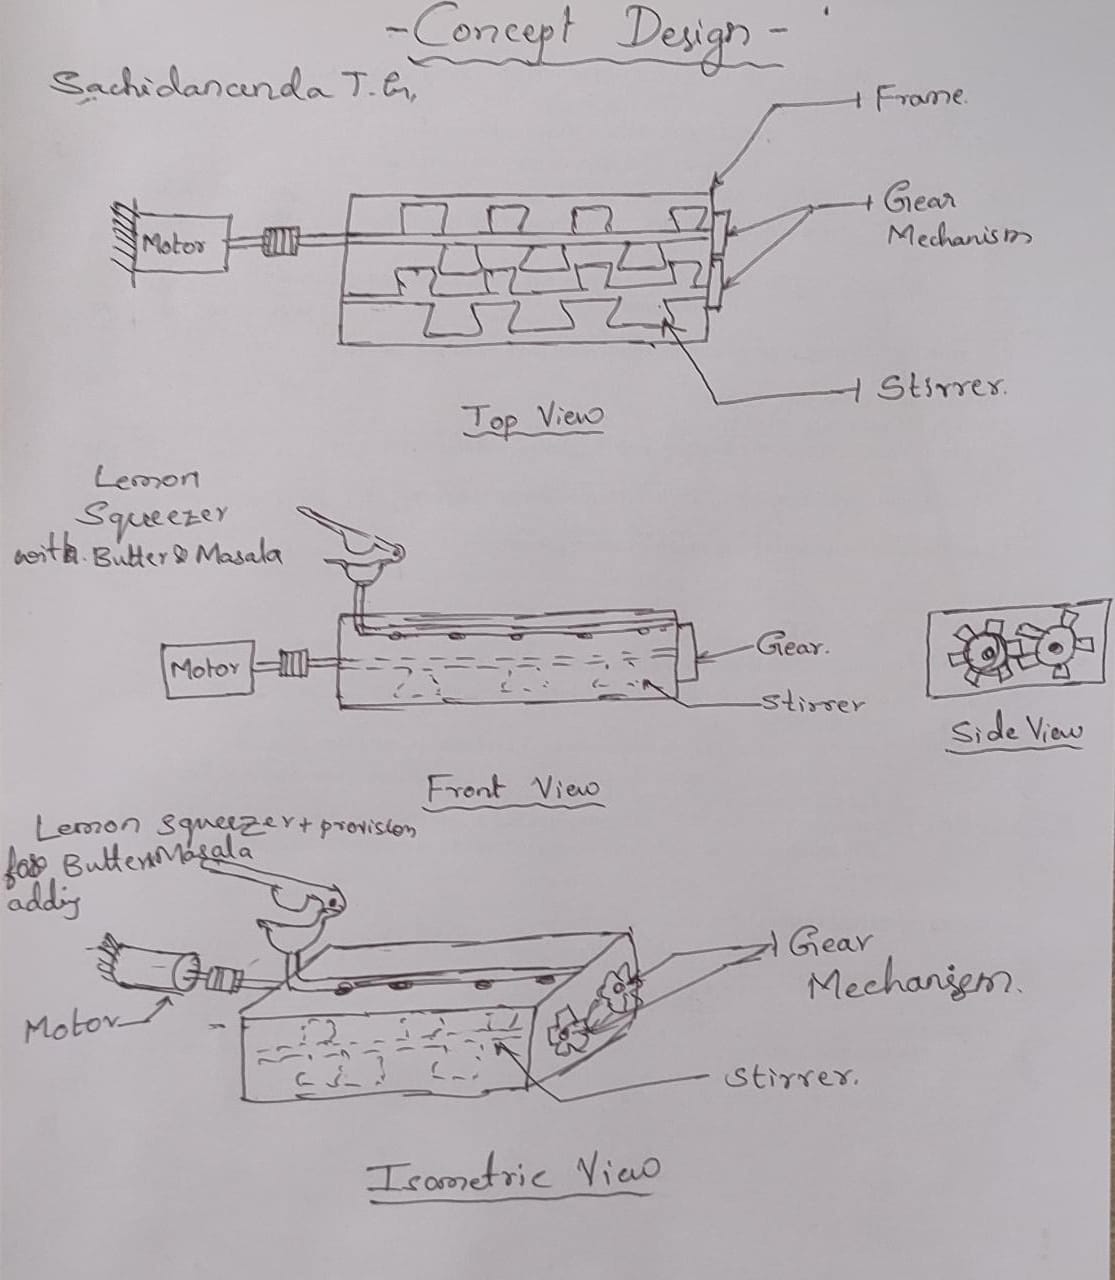 - Concept Design -
Sachidananda T.G,
Frame.
Gear
Mechanism
Motor
Stirrer.
Top View
Lemon
Squeezer
with. Butter & Masala
Motor
Gear.
Stirrer
Side View
Front View
Lemon squeezer + provision
for Butter & Masala
adding
Gear
Mechanism.
Motor
Stirrer.
Isometric View